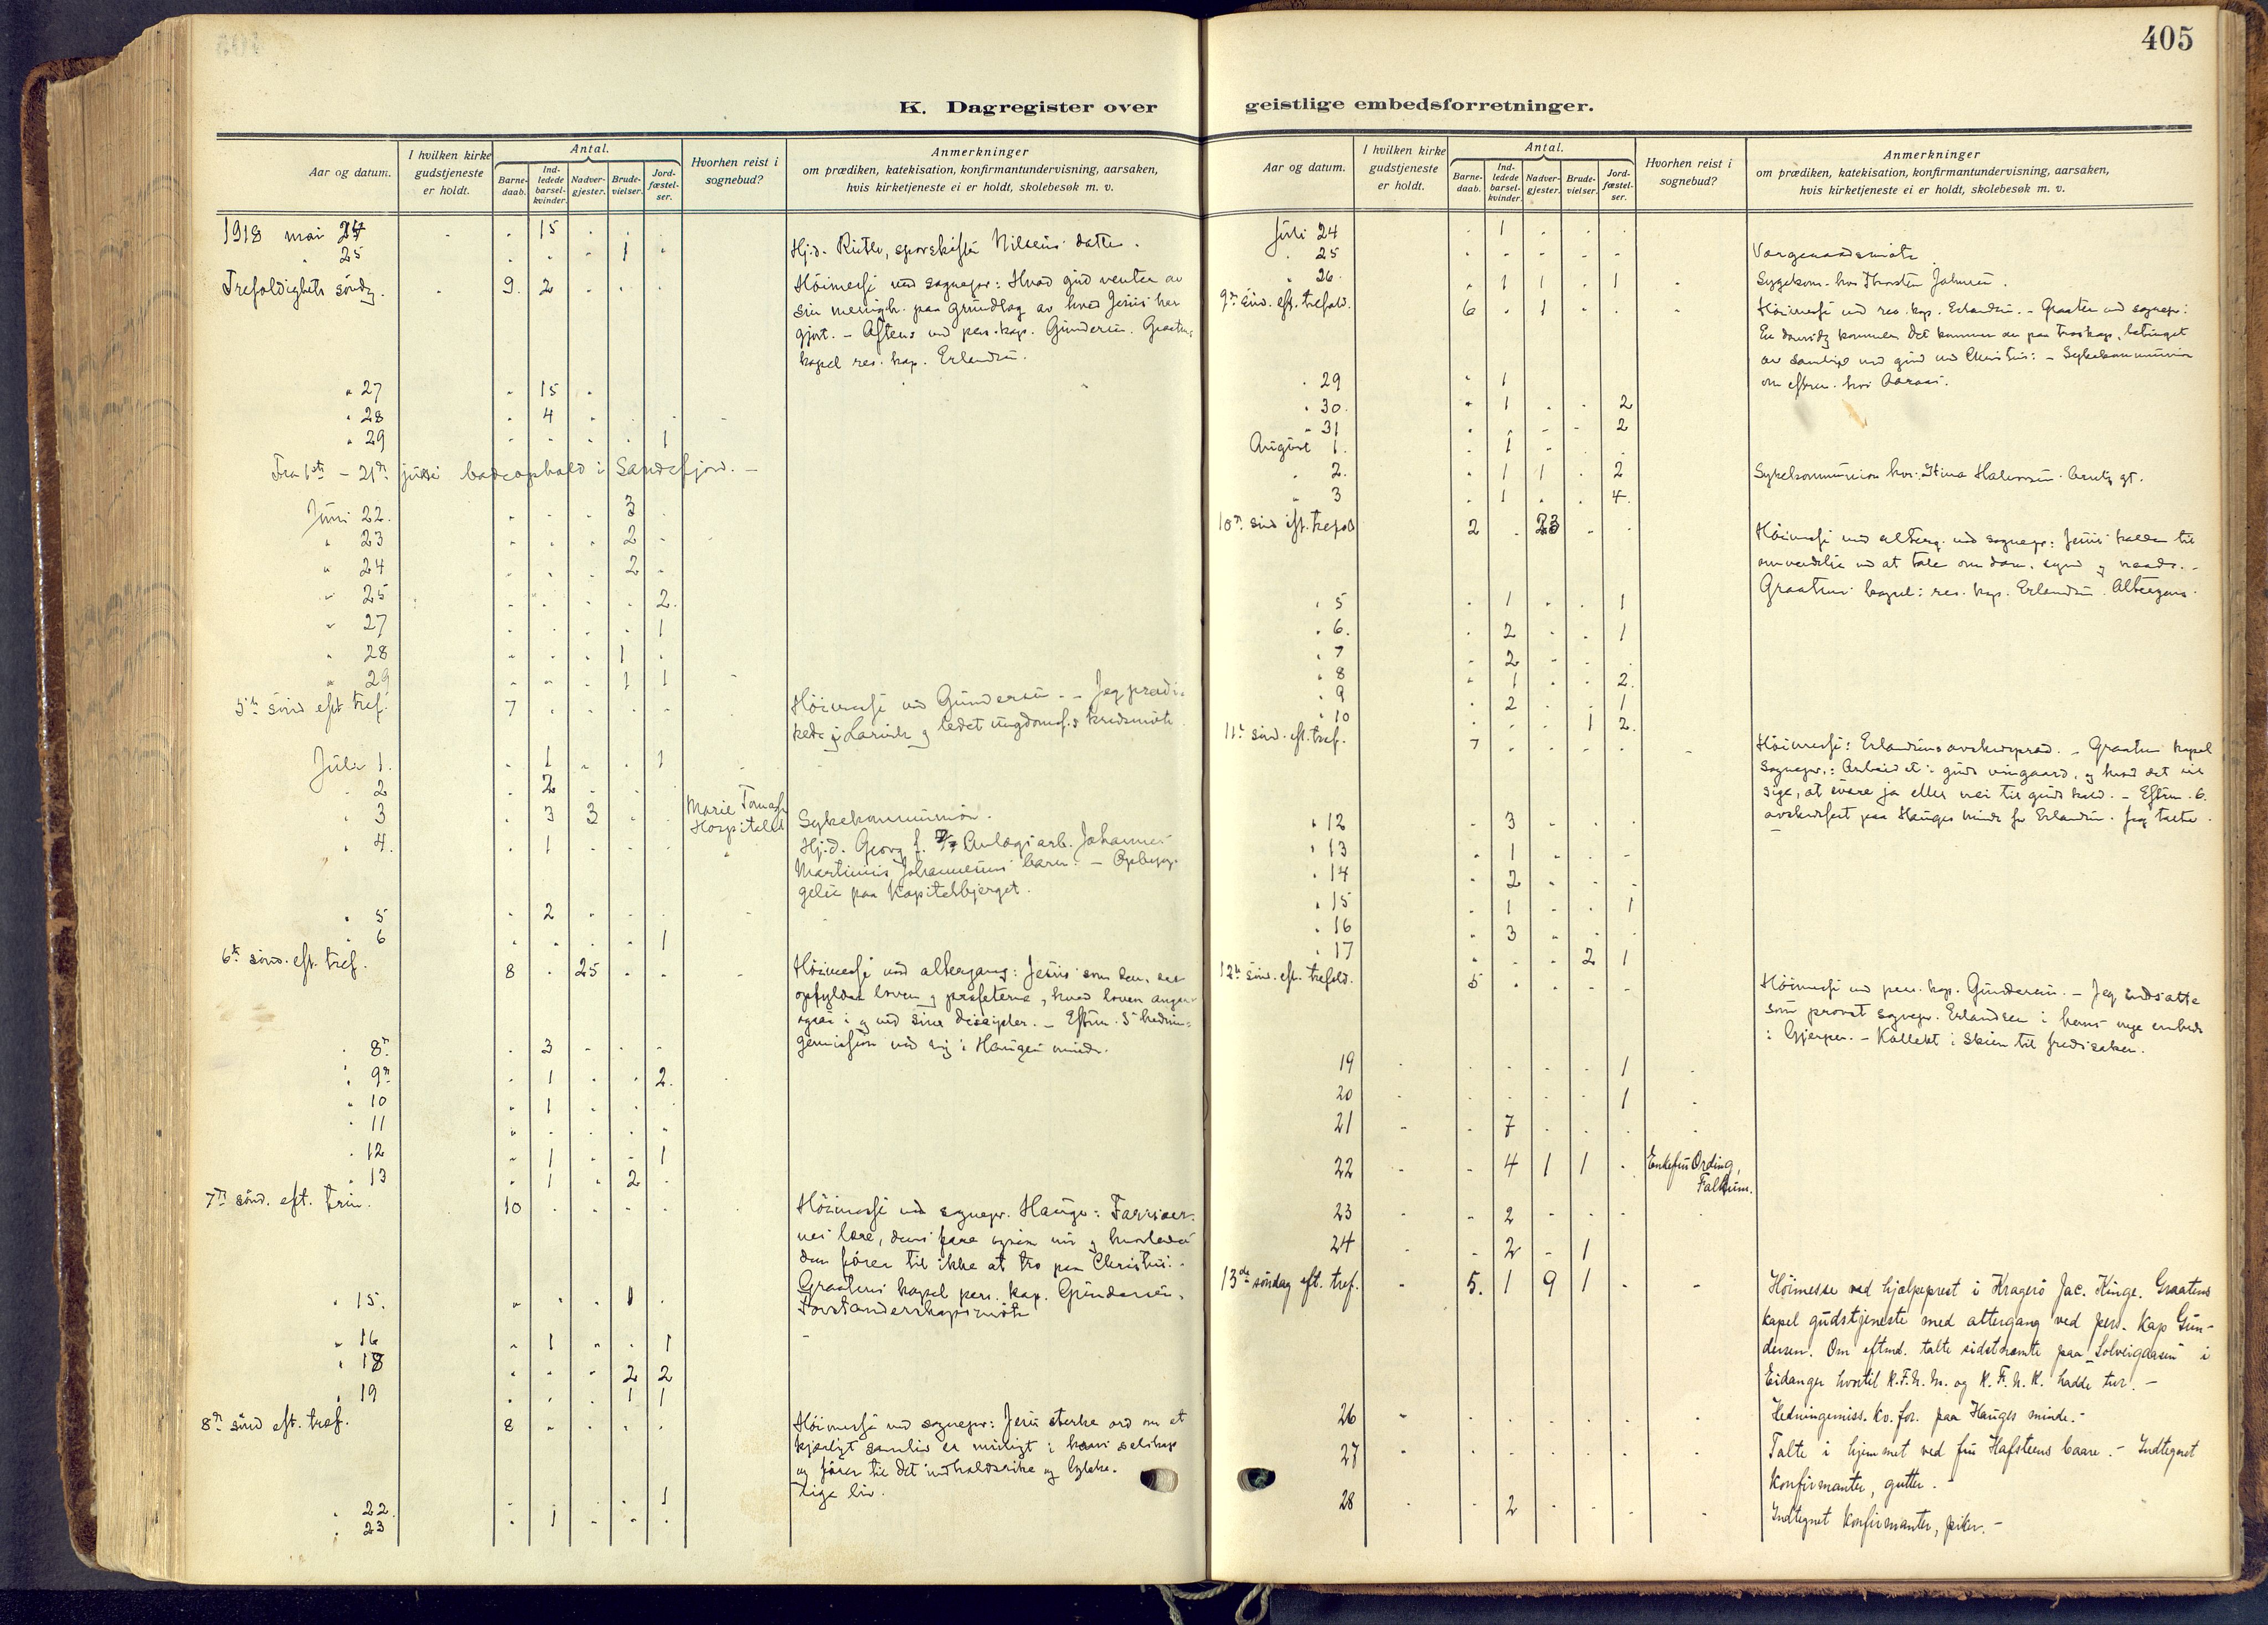 405
K. Dagregister over geistlige embedsforretninger.
Aar og datum. I hvilken kirke gudstjeneste er holdt. Antal. Barnedaab. Indledede barselkvinder. Nadvergjester. Brudevielser. Jordfæstelser. Hvorhen reist i sognebud? Anmerkninger om prædiken, katekisation, konfirmantundervisning, aarsaken, hvis kirketjeneste ei er holdt, skolebesøk m. v.
1918 mai 24 15
" 25 1 Hj.d. Ruth, sporskifter Nilsens datter.
Trefoldighets søndg. 9 2 Høimesse ved sognepr: Hvad gud venter av
sin menigh. paa grundlag av hvad Jesus har
gjort. - Aftens ved pers. kap. Gundersen. Graatens
kapel res. kap. Erlandsen.
" 27 15
" 28 4
" 29 1
Fra 1ste - 21de juni badeophold i Sandefjord. -
Juni 22. 3
" 23 2
" 24 2
" 25 2.
" 27 1
" 28 1
" 29 1 1
5te sønd eft. tref. 7 Høimesse ved Gundersen. - Jeg prædi-
kede i Larvik og ledet ungdomsf.s kredsmøte
Juli 1. 1 1
" 2 2
" 3 3 3 Marie
Hospitalet Sykekommunion.
" 4. 1 Hj.d. Georg f. Anlægsarb. Johannes
Martinius Johannesens barn. - Opbyg-
gelse paa Kapitelbjerget.
" 5 2
" 6 1
6te sønd. eft. tref. 8 25 Høimesse med altergang: Jesus som den, der
opfylder loven og profeterne, hvad loven angaar
ogsaa i og ved sine disciple. - Eftm. 5 hednin-
gemission ved mig i Hauges minde.
" 8de 3
" 9de 1 2.
" 10 1
" 11
" 12 1 1
" 13 1 2
7de sønd. eft. trin. 10 Høimesse ved sognepr. Hauge: Farisæer-
nes lære, dens fare ogsaa nu og hvorledes
den fører til ikke at tro paa Christus. -
Graatens kapel pers. kap. Gundersen.
" 15. 1 Forstanderskapsmøte
" 16 1 1
" 18 2 2
" 19 1 1
8de sønd eft. tref. 8 Høimesse ved sognepr: Jesu sterke ord om at
kjærligt samliv er muligt i hans selskap
og fører til det indholdsrike og lykke-
lige liv.
" 22. 1
" 23 1
Juli 24 1
" 25 Vergeraadsmøte
" 26 1 1 1 Sygekom. hos Thorsten
9de sønd. eft. trefold. 6 1 Høimesse ved res. kap. Erlandsen. - Graaten ved sognepr:
om eftm. hos
" 29 1
" 30. 1 2
" 31 2
August 1. 1
" 2. 1 1 2 Sykekommunion hos Stina Halvorsen
" 3 1 4.
10de sønd eft. trefold 2 23 Høimesse med alterg. ved sognepr: Jesus kalder til
omvendelse ved at tale om dom, synd og naade. -
Graatens kapel: res. kap. Erlandsen. Altergang.
" 5 1 1
" 6. 2 1
" 7 2
" 8 1 2.
" 9 2 1
" 10 1 2.
11te sønd. eft. tref. 7 Høimesse: Erlandsens avskedspræd. - Graaten kapel
Sognepr.: Arbeidet i guds vingaard, og hvad det vil
sige, at svare ja eller nei til guds kald. - Eftm. 6.
avskedsfest paa Hauges minde for Erlandsen. Jeg talte
" 12 3
" 13 1
" 14 2
" 15 1 1
" 16 3
" 17 2 1
12te sønd. eft. trefold. 5 Høimesse ved pers. kap. Gundersen. - Jeg indsatte
som provst sognepr. Erlandsen i hans nye embede
i Gjerpen. - Kollekt i Skien til fredssaken.
19 1
20 1
21 7
22 4 1 1 Enkefru Ording,
Falkum.
23 2
24 2 1
13de søndag eft. tref. 5. 1 9 1 Høimesse ved hjælpeprest i Kragerø Jac. Kinge. Graatens
kapel gudstjeneste med altergang ved pers. Kap Gun-
dersen. Om eftmd. talte sidstnævnte paa "Solveigaasen" i
Eidanger hvortil K.F.U.M. og K.F.U.K. hadde tur. -
26 Hedningemiss. Kv. for. paa Hauges minde. -
27 Talte i hjemmet ved fru Hafsteens baare. - Indtegnet
konfirmanter, gutter. -
28 2 Indtegnet konfirmanter, piker. -